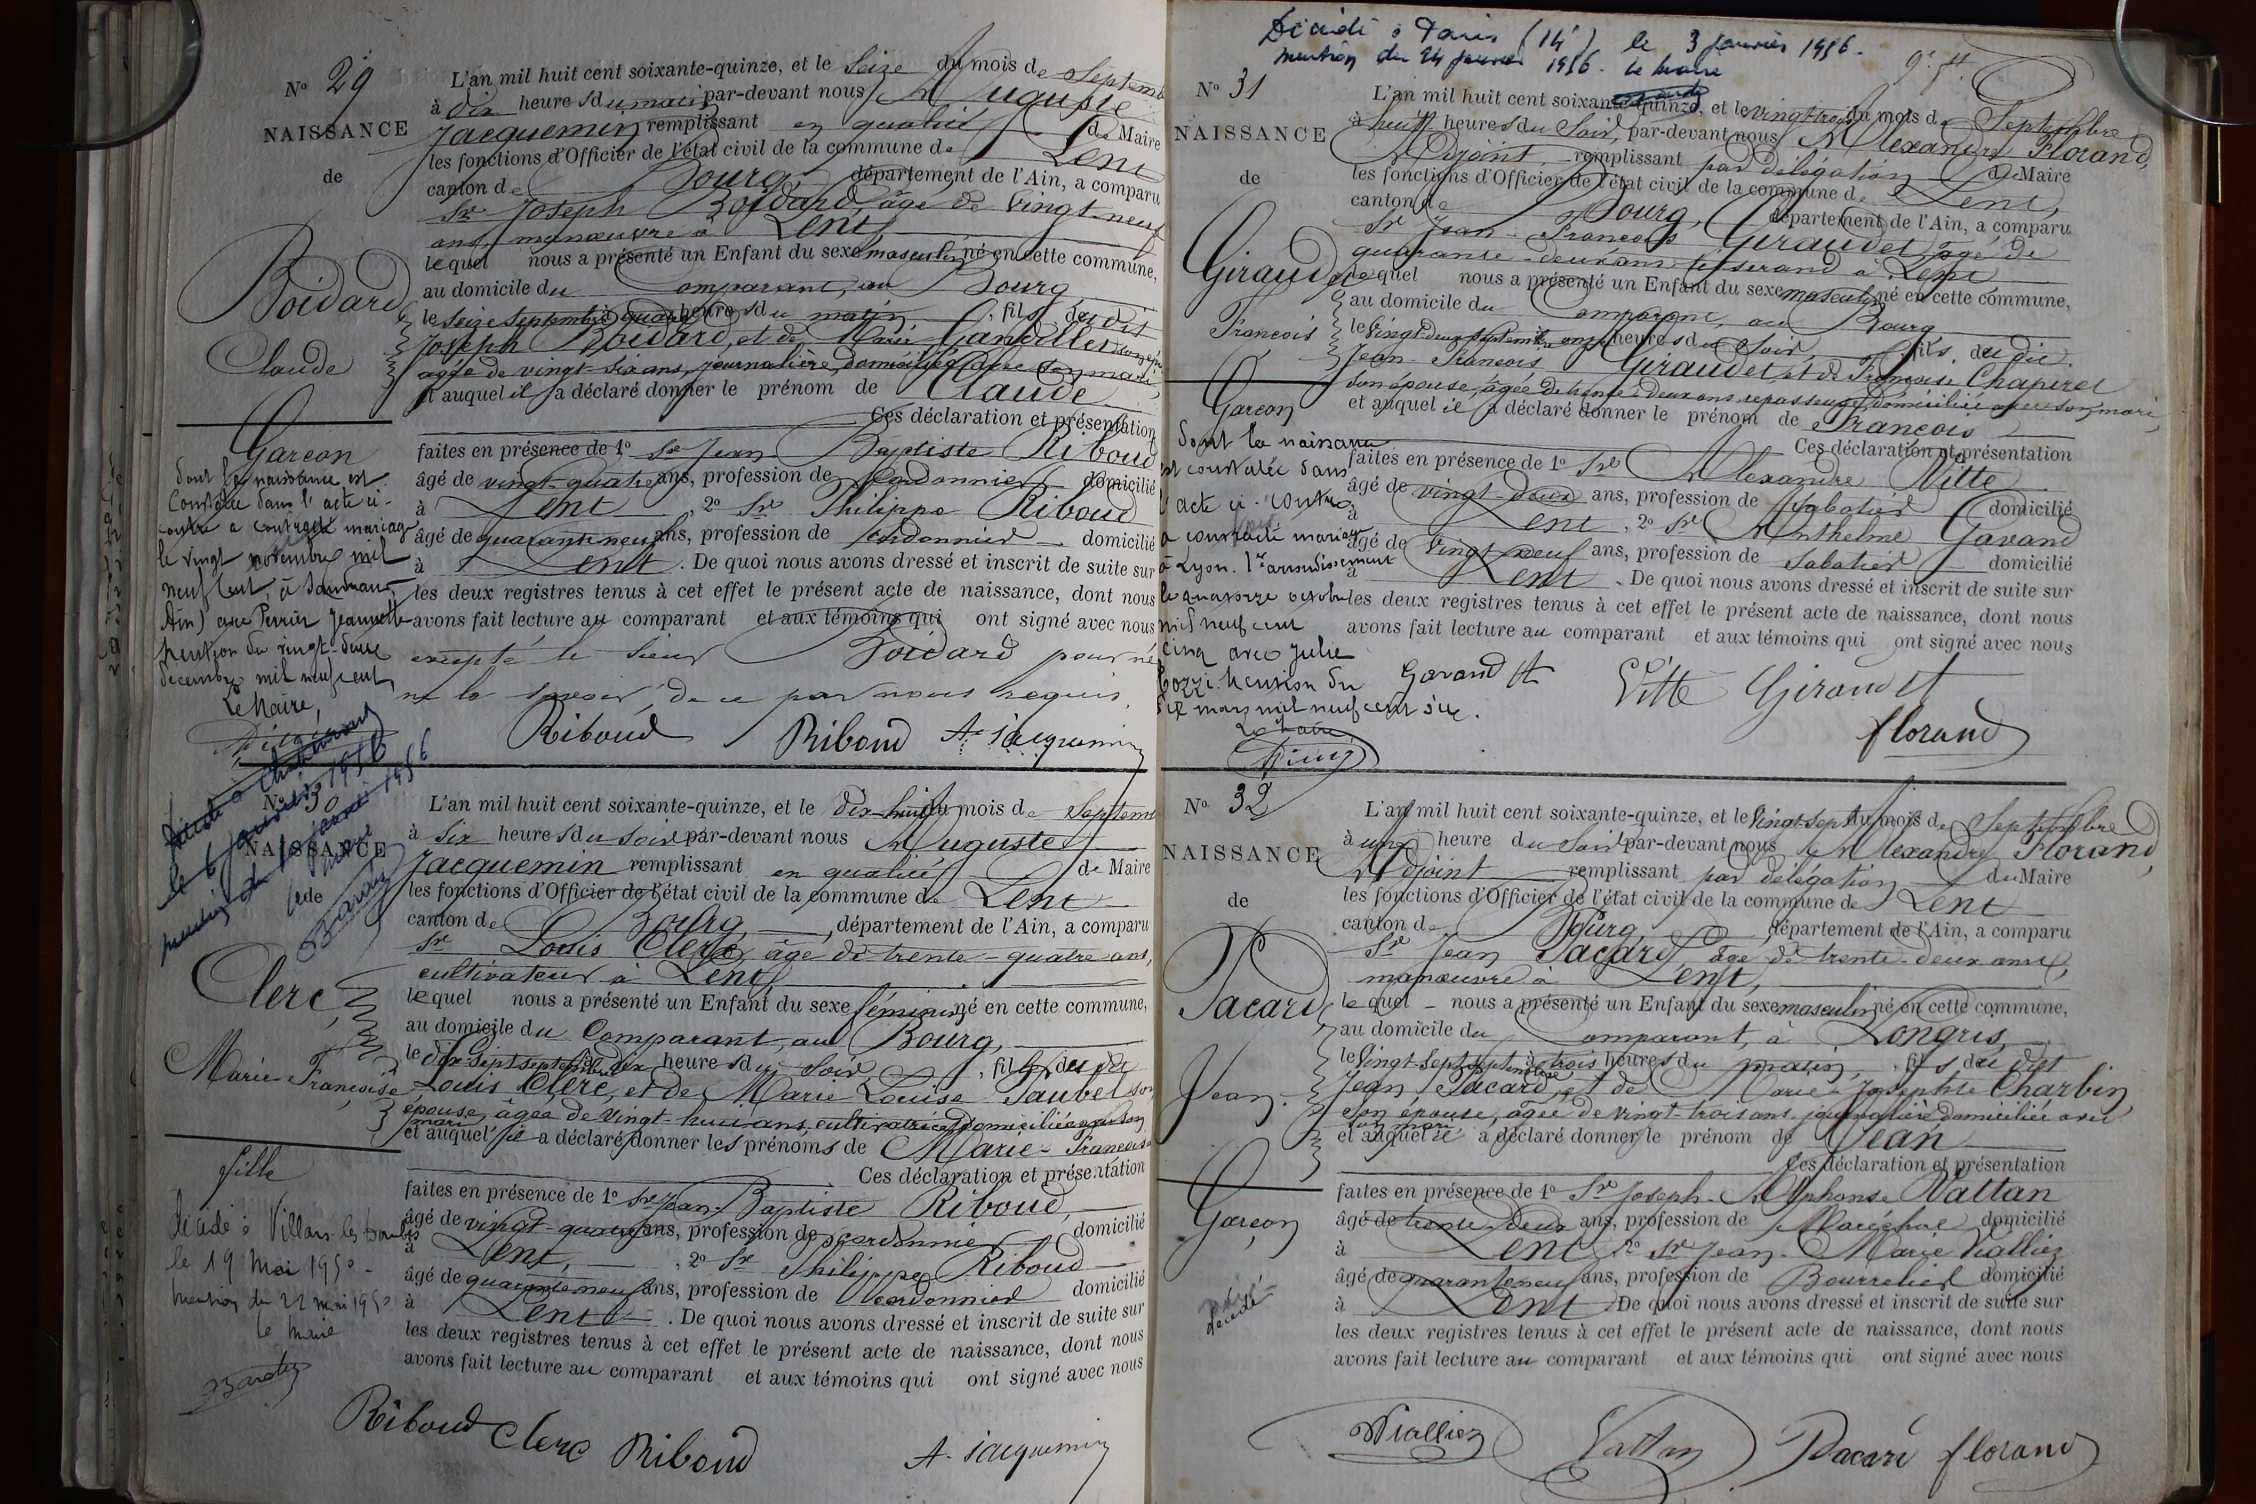 N° 29
NAISSANCE
de
Boidard
Claude
Garçon
dont la naissance est
constatée dans l'acte ci-
contre a contracté mariage
le vingt novembre mil
neuf cent, à
(Ain) avec Perrier Jeannette
Mention du vingt-deux
décembre mil neuf cent
Le Maire,
L'an mil huit cent soixante-quinze, et le seize du mois de Septemb
à dix heures du matin par-devant nous Auguste
Jacquemin remplissant en qualité de Maire
les fonctions d'Officier de l'état civil de la commune de Lent
canton de Bourg, département de l'Ain, a comparu
Sr Joseph Boidard, âgé de vingt-neuf
ans, manœuvre à Lent,
lequel nous a présenté un Enfant du sexe masculin né en cette commune,
au domicile du Comparant, au Bourg
le seize septembre à quatre heures du matin, fils du dit
Joseph Boidard, et de Marie son épouse
agée de vingt-six ans, journalière, domiciliée avec son mari,
et auquel il a déclaré donner le prénom de Claude
Ces déclaration et présentation
faites en présence de 1° Sr Jean Baptiste Riboud
âgé de vingt-quatre ans, profession de Cordonnier domicilié
à Lent, 2° Sr Philippe Riboud
âgé de quarante-neuf ans, profession de cordonnier domicilié
à Lent. De quoi nous avons dressé et inscrit de suite sur
les deux registres tenus à cet effet le présent acte de naissance, dont nous
avons fait lecture au comparant et aux témoins qui ont signé avec nous
excepté le sieur Boidard pour ne
ne le savoir, de ce par nous requis.
Riboud Riboud A. Jacquemin
Décédé à
le 6 janvier 1956
mention du janvier 1956
le maire
N° 30
NAISSANCE
de
Clerc,
Marie-Françoise
Fille
Décédé à Villars-les-Dombes
le 19 Mai 1950 -
Mention du 22 mai 1950
le Maire
L'an mil huit cent soixante-quinze, et le dix-huit du mois de Septemb
à six heures du soir par-devant nous Auguste
Jacquemin remplissant en qualité de Maire
les fonctions d'Officier de l'état civil de la commune de Lent
canton de Bourg, département de l'Ain, a comparu
Sr Louis Clerc, âgé de trente-quatre ans,
cultivateur à Lent,
lequel nous a présenté un Enfant du sexe féminin né en cette commune,
au domicile du Comparant, au Bourg,
le dix-sept septembre à dix heures du soir, fille du dit
Louis Clerc, et de Marie Louise Taubel son
épouse, âgée de vingt-huit ans, cultivatrice, domiciliée avec son
mari
et auquel il a déclaré donner les prénoms de Marie-Françoise
Ces déclaration et présentation
faites en présence de 1° Sr Jean-Baptiste Riboud,
âgé de vingt-quatre ans, profession de cordonnier domicilié
à Lent, 2° Sr Philippe Riboud
âgé de quarante-neuf ans, profession de cordonnier domicilié
à Lent. De quoi nous avons dressé et inscrit de suite sur
les deux registres tenus à cet effet le présent acte de naissance, dont nous
avons fait lecture au comparant et aux témoins qui ont signé avec nous
Riboud Clerc Riboud A. Jacquemin
Décédé à Paris (14e) le 3 janvier 1956.
mention du 24 janvier 1956. Le maire
N° 31
NAISSANCE
de
Giraudet
François
Garçon
Dont la naissance
est constatée dans
l'acte ci-contre
a contracté mariage
à Lyon. 1er arrondissement
le quatorze octobre
mil neuf cent
cinq avec Julie
Mention du
six mars mil neuf cent six.
Le Maire
L'an mil huit cent soixante-quinze, et le vingt-trois du mois de Septembre
à huit heures du soir, par-devant nous Alexandre Florand,
Adjoint remplissant par délégation du Maire
les fonctions d'Officier de l'état civil de la commune de Lent,
canton de Bourg, département de l'Ain, a comparu
Sr Jean-François Giraudet, âgé de
quarante-deux ans, tisserand à Lent
lequel nous a présenté un Enfant du sexe masculin né en cette commune,
au domicile du Comparant, au Bourg
le vingt-deux septembre à onze heures du soir, fils du dit
Jean-François Giraudet, et de Françoise Chaperel
son épouse, âgée de trente-deux ans, repasseuse, domiciliée avec son mari,
et auquel il a déclaré donner le prénom de François
Ces déclaration et présentation
faites en présence de 1° Sr Alexandre Vitte
âgé de vingt-deux ans, profession de Sabotier domicilié
à Lent, 2° Sr Anthelme Gavand
âgé de vingt-neuf ans, profession de Sabotier domicilié
à Lent. De quoi nous avons dressé et inscrit de suite sur
les deux registres tenus à cet effet le présent acte de naissance, dont nous
avons fait lecture au comparant et aux témoins qui ont signé avec nous
Gavand Vitte Giraudet
florand
N° 32
NAISSANCE
de
Pacard
Jean.
Garçon
décédé
L'an mil huit cent soixante-quinze, et le vingt-sept du mois de Septembre
à une heure du soir par-devant nous Alexandre Florand,
Adjoint remplissant par délégation du Maire
les fonctions d'Officier de l'état civil de la commune de Lent
canton de Bourg, département de l'Ain, a comparu
Sr Jean Pacard, âgé de trente-deux ans,
manœuvre à Lent,
lequel - nous a présenté un Enfant du sexe masculin né en cette commune,
au domicile du Comparant, à Longris,
le vingt-sept septembre à trois heures du matin, fils du dit
Jean Pacard, et de Marie-Josephte Charbin,
son épouse, âgée de vingt-trois ans, journalière, domiciliée avec
son mari,
et auquel il a déclaré donner le prénom de Jean
Ces déclaration et présentation
faites en présence de 1° Sr Joseph-Alphonse Vattan
âgé de trente-deux ans, profession de Maréchal domicilié
à Lent 2° Sr Jean-Marie Vialliez
âgé de quarante-neuf ans, profession de Bourrelier domicilié
à Lent. De quoi nous avons dressé et inscrit de suite sur
les deux registres tenus à cet effet le présent acte de naissance, dont nous
avons fait lecture au comparant et aux témoins qui ont signé avec nous
Vialliez Vattan Pacard florand